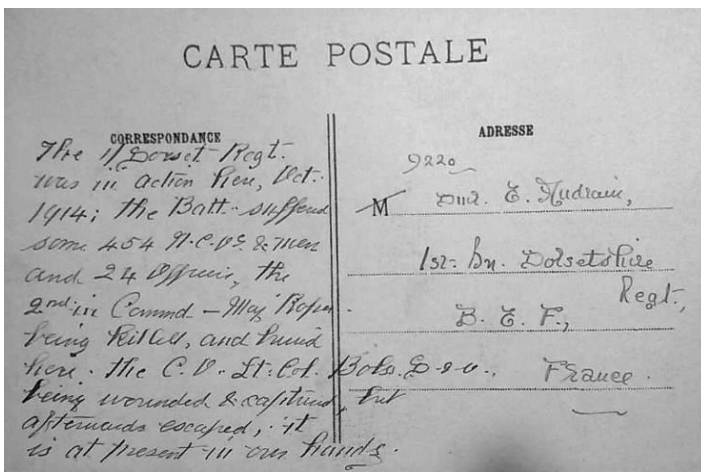 CARTE POSTALE
CORRESPONDANCE
The 1/Dorset Regt.
was in action here, Oct.
1914; the Batt. suffered
some 454 N.C.O's. & men
and 24 Officers, the
2nd in Commd - Maj Roper
being killed, and buried
here. the C.O. Lt: Col. Bols. D.S.O.,
being wounded & captured, but
afterwards escaped, it
is at present in our hands.
ADRESSE
9220
M Dmr. E. Audrain,
1st. Bn. Dorsetshire
Regt.,
B. E. F.,
France.